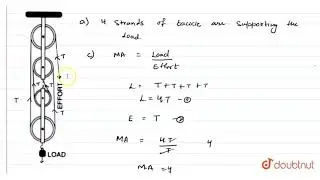 a) 4 strands of tackle are supporting the
load.
c) MA = Load
Effort
L = T + T + T + T
L = 4T - ①
E = T - ②
MA = 4T
T
4
MA = 4
T
T
T
T
T
EFFORT
LOAD
doubtnut